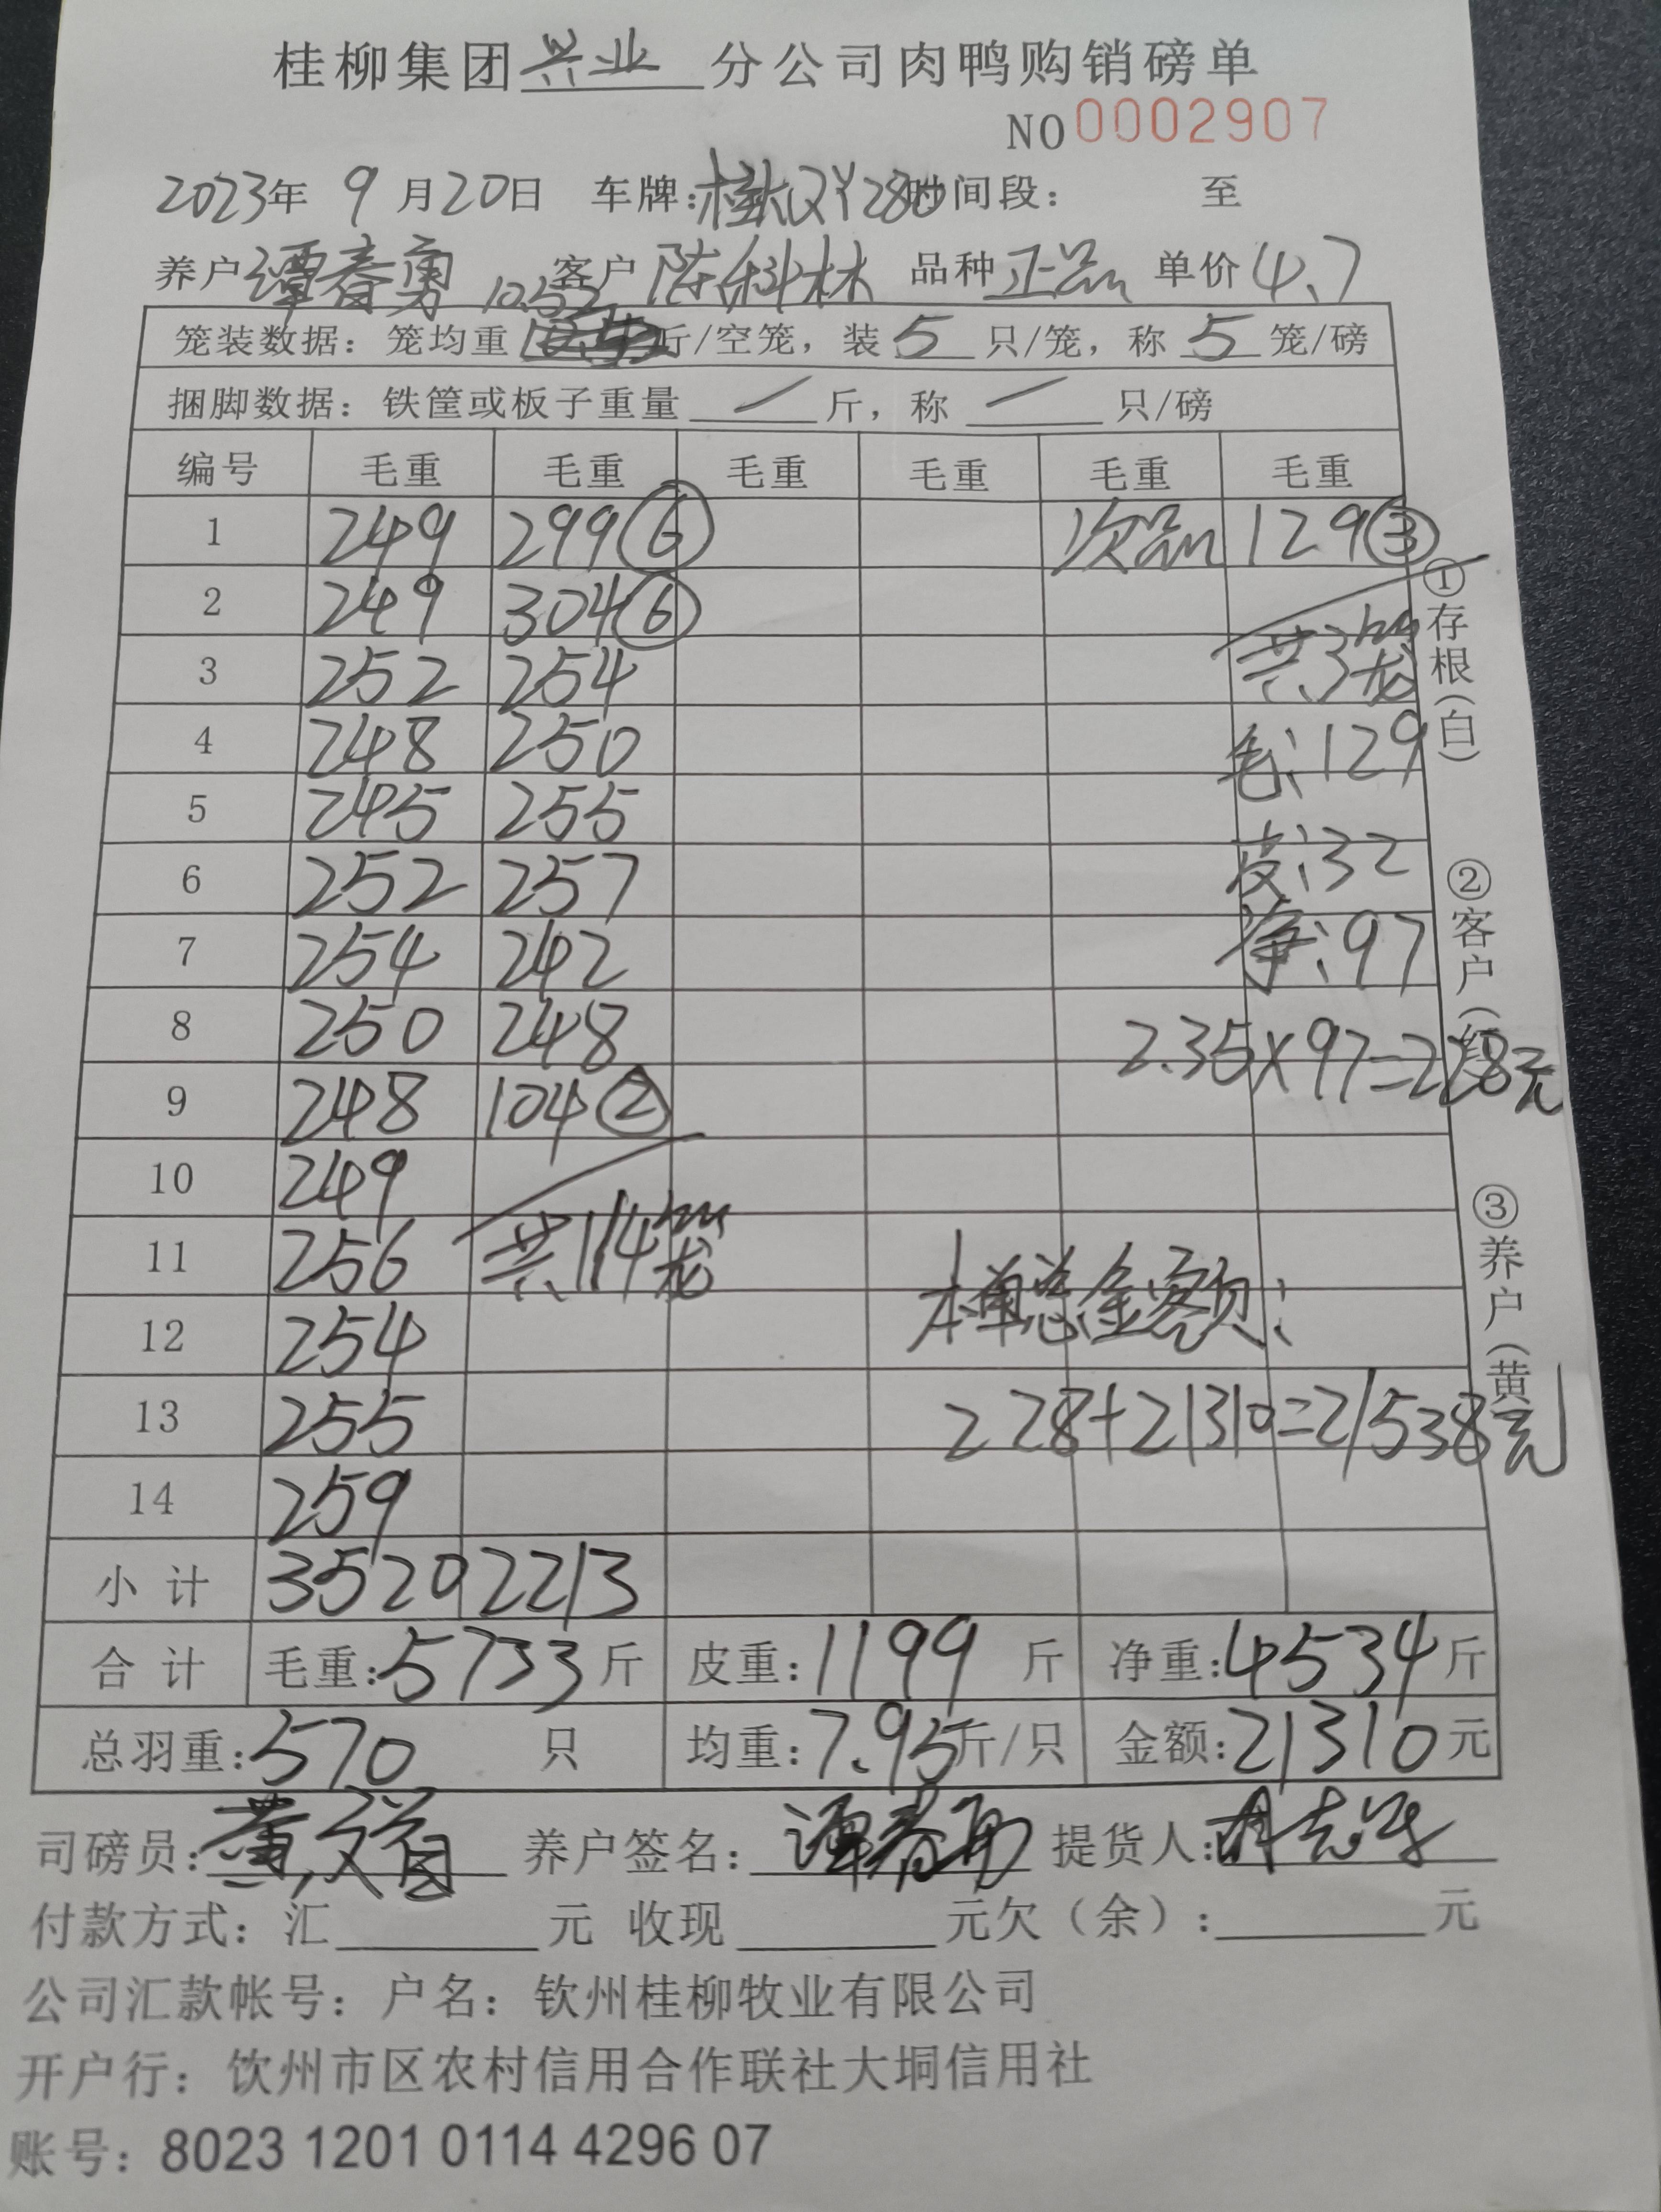 桂柳集团兴业分公司肉鸭购销磅单
NO 0002907
2023年 9月20日 车牌: 时间段: 至
养户 谭春勇 客户 陈科林 品种 正品 单价 4.7
10.52
笼装数据: 笼均重 斤/空笼, 装 5 只/笼, 称 5 笼/磅
捆脚数据: 铁筐或板子重量 / 斤, 称 / 只/磅
编号 毛重 毛重 毛重 毛重 毛重 毛重
1 249 299⑥ 次品 129③
2 249 304⑥
3 252 254 共3笼
4 248 250 毛:129
5 245 255
6 252 257 皮:32
7 254 242 净:97
8 250 248 2.35×97=228元
9 248 104②
10 249
11 256 共114笼
12 254 本单总金额:
13 255 228+21310=21538元
14 259
小计 3520 2213
合计 毛重:5733斤 皮重:1199斤 净重:4534斤
总羽重:570只 均重:7.95斤/只 金额:21310元
司磅员: 养户签名:谭春勇 提货人:
付款方式: 汇 元 收现 元欠(余): 元
公司汇款帐号: 户名: 钦州桂柳牧业有限公司
开户行: 钦州市区农村信用合作联社大垌信用社
账号: 8023 1201 0114 4296 07
①存根(白)
②客户(红)
③养户(黄)